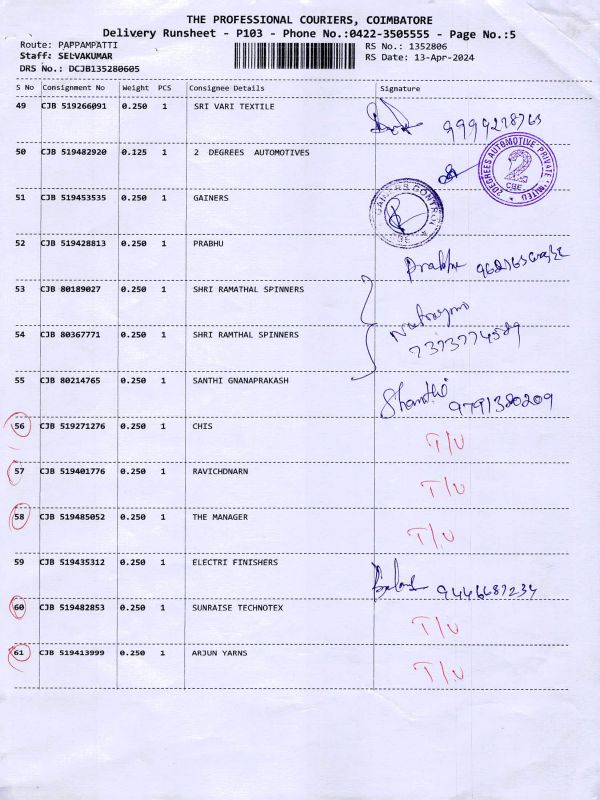 THE PROFESSIONAL COURIERS, COIMBATORE
Delivery Runsheet - P103 - Phone No.:0422-3505555 - Page No.:5
Route: PAPPAMPATTI RS No.: 1352806
Staff: SELVAKUMAR RS Date: 13-Apr-2024
DRS No.: DCJB135280605
S No Consignment No Weight PCS Consignee Details Signature
49 CJB 519266091 0.250 1 SRI VARI TEXTILE
50 CJB 519482920 0.125 1 2 DEGREES AUTOMOTIVES
2DEGREES AUTOMOTIVE PRIVATE LIMITED
2
CBE
51 CJB 519453535 0.250 1 GAINERS
52 CJB 519428813 0.250 1 PRABHU
Prabhu
53 CJB 80189027 0.250 1 SHRI RAMATHAL SPINNERS
54 CJB 80367771 0.250 1 SHRI RAMTHAL SPINNERS
7373774589
55 CJB 80214765 0.250 1 SANTHI GNANAPRAKASH
Shanthi 9791380209
56 CJB 519271276 0.250 1 CHIS
T/U
57 CJB 519401776 0.250 1 RAVICHDNARN
T/U
58 CJB 519485052 0.250 1 THE MANAGER
T/U
59 CJB 519435312 0.250 1 ELECTRI FINISHERS
9446687234
60 CJB 519482853 0.250 1 SUNRAISE TECHNOTEX
T/U
61 CJB 519413999 0.250 1 ARJUN YARNS
T/U